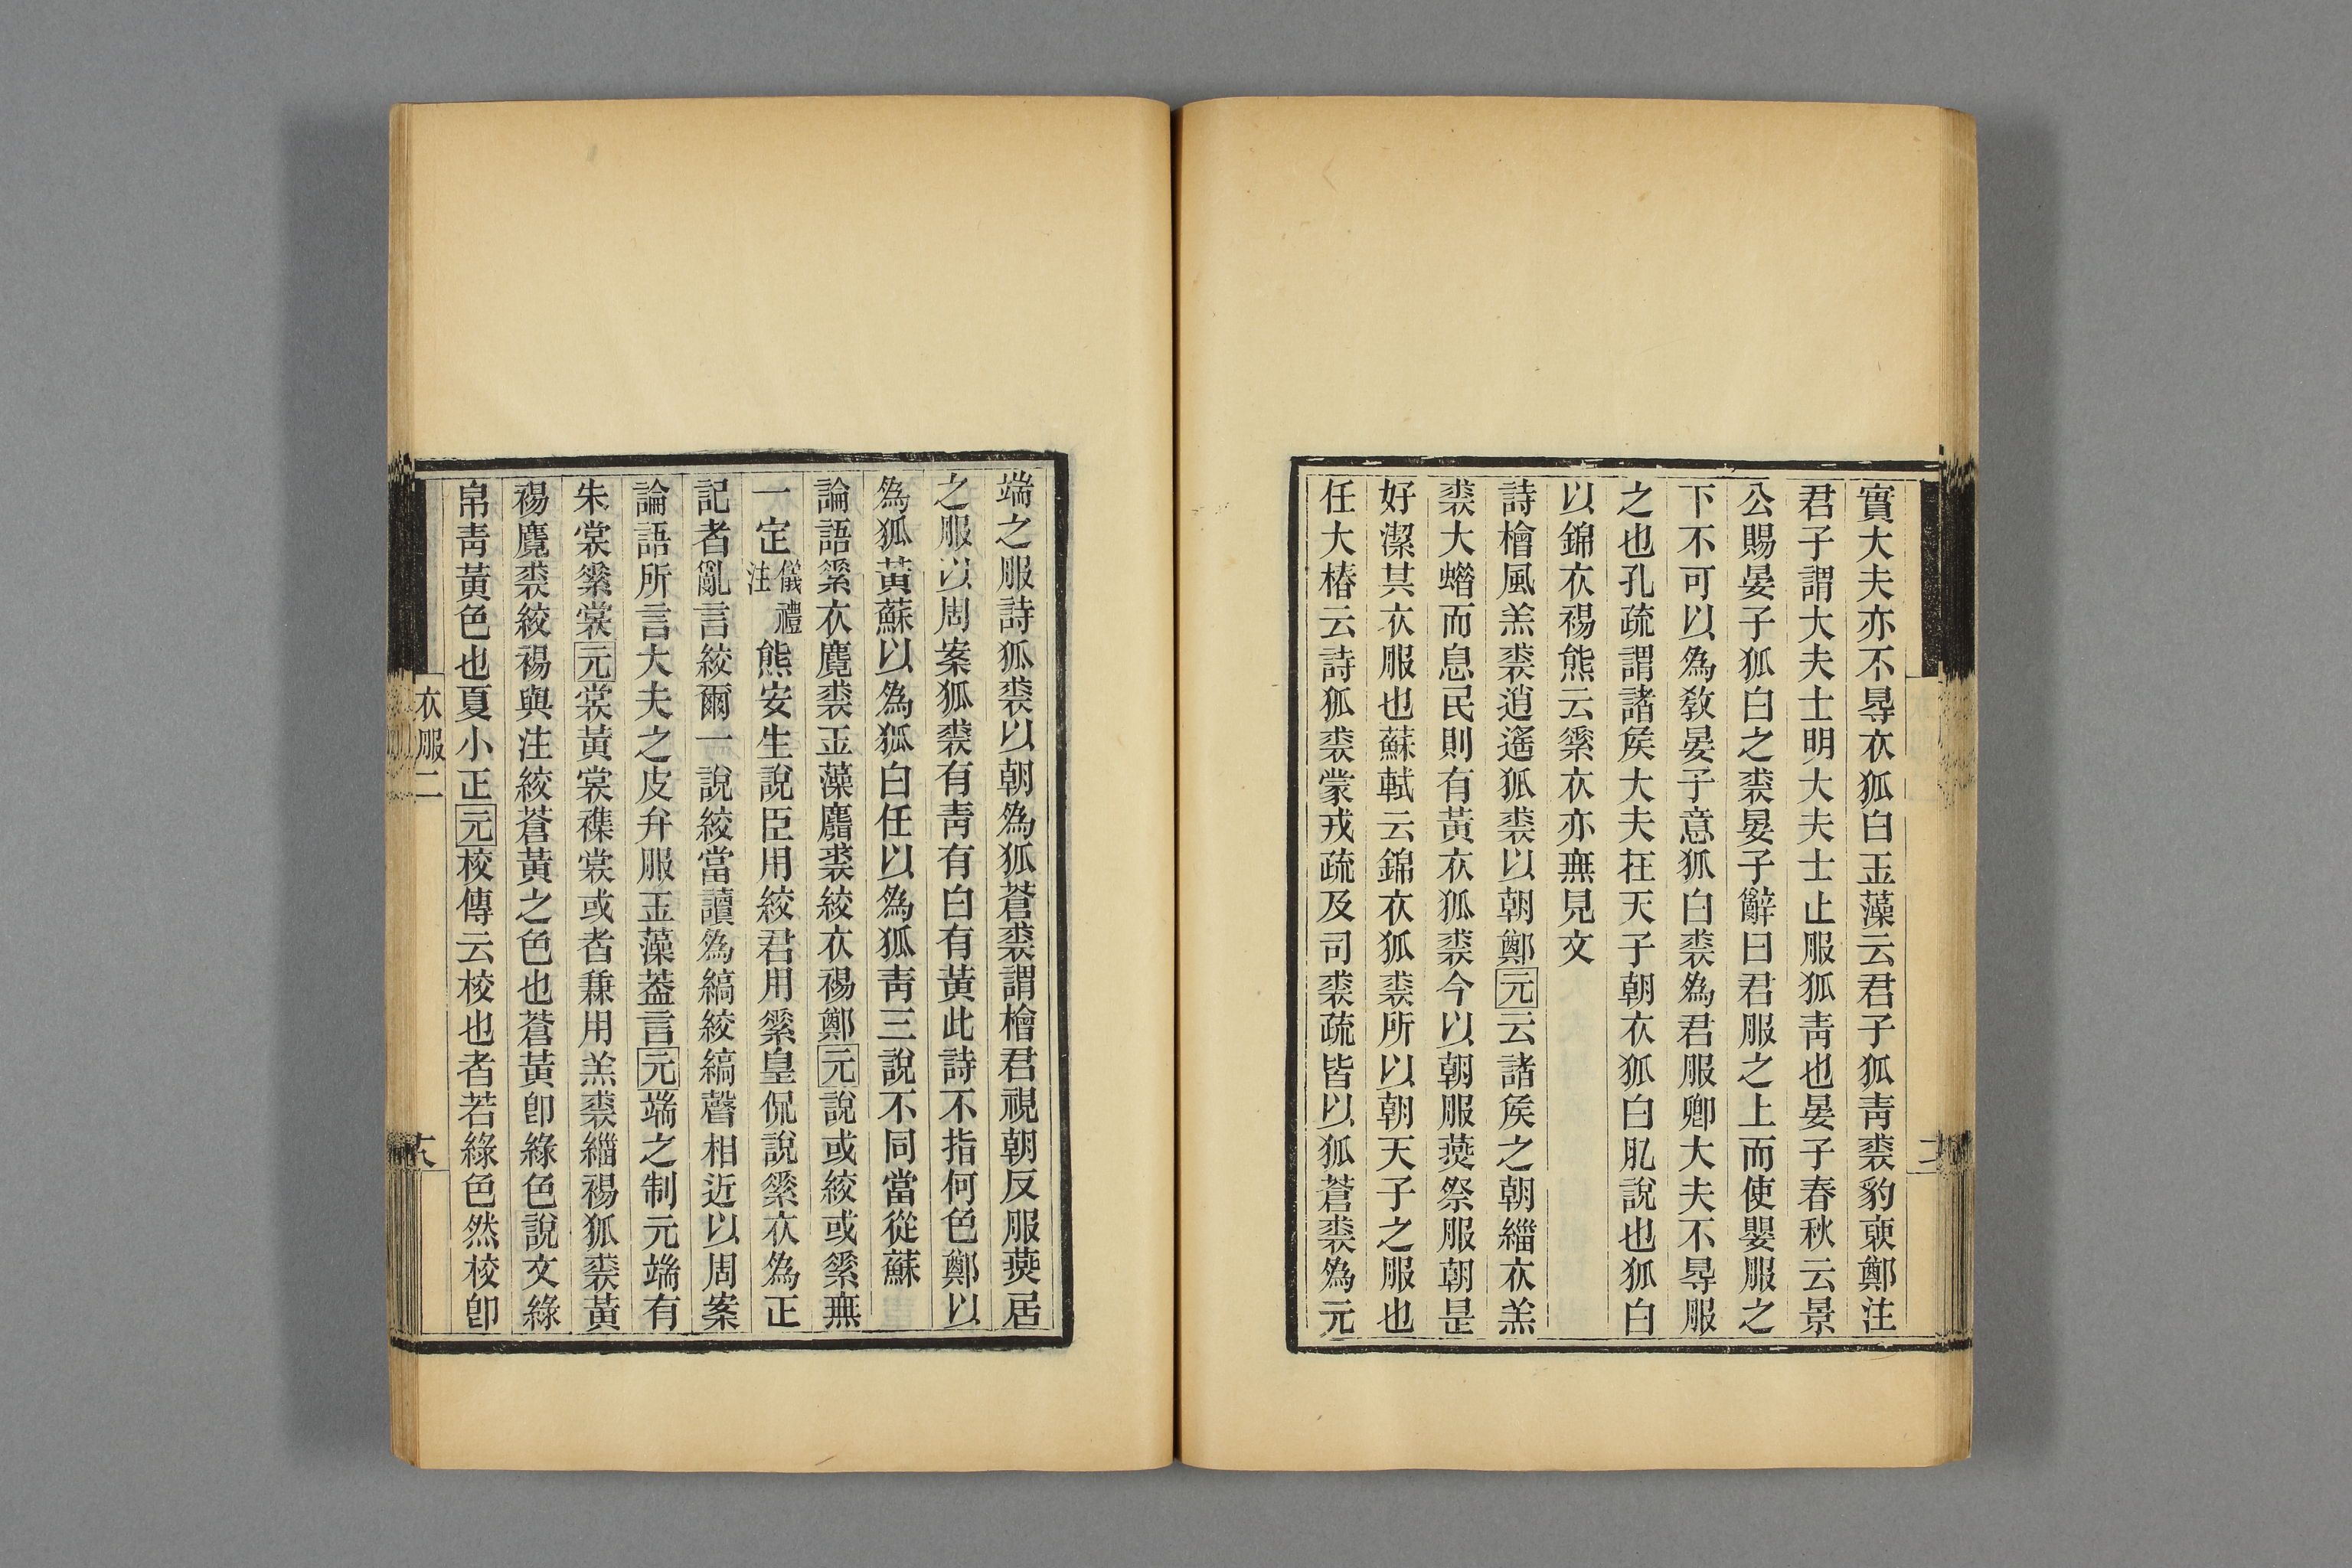 實大夫亦不㝵衣狐白玉藻云君子狐靑裘豹褎鄭注
君子謂大夫士明大夫士止服狐靑也晏子春秋云景
公賜晏子狐白之裘晏子辭曰君服之上而使嬰服之
下不可以為敎晏子意狐白裘為君服卿大夫不㝵服
之也孔疏謂諸矦大夫在天子朝衣狐白肊說也狐白
以錦衣裼熊云絫衣亦無見文
詩檜風羔裘逍遙狐裘以朝鄭元云諸矦之朝緇衣羔
裘大蜡而息民則有黃衣狐裘今以朝服燕祭服朝是
好潔其衣服也蘇軾云錦衣狐裘所以朝天子之服也
任大椿云詩狐裘蒙戎疏及司裘疏皆以狐蒼裘為元
端之服詩狐裘以朝為狐蒼裘謂檜君視朝反服燕居
之服以周案狐裘有靑有白有黃此詩不指何色鄭以
為狐黃蘇以為狐白任以為狐靑三說不同當從蘇
論語絫衣麑裘玉藻麛裘絞衣裼鄭元說或絞或絫無
一定儀禮注熊安生說臣用絞君用絫皇侃說絫衣為正
記者亂言絞爾一說絞當讀為縞絞縞聲相近以周案
論語所言大夫之皮弁服玉藻葢言元端之制元端有
朱裳絫裳元裳黃裳襍裳或者兼用羔裘緇裼狐裘黃
裼麑裘絞裼與注絞蒼黃之色也蒼黃卽綠色說文綠
帛靑黃色也夏小正元校傳云校也者若綠色然校卽
衣服二